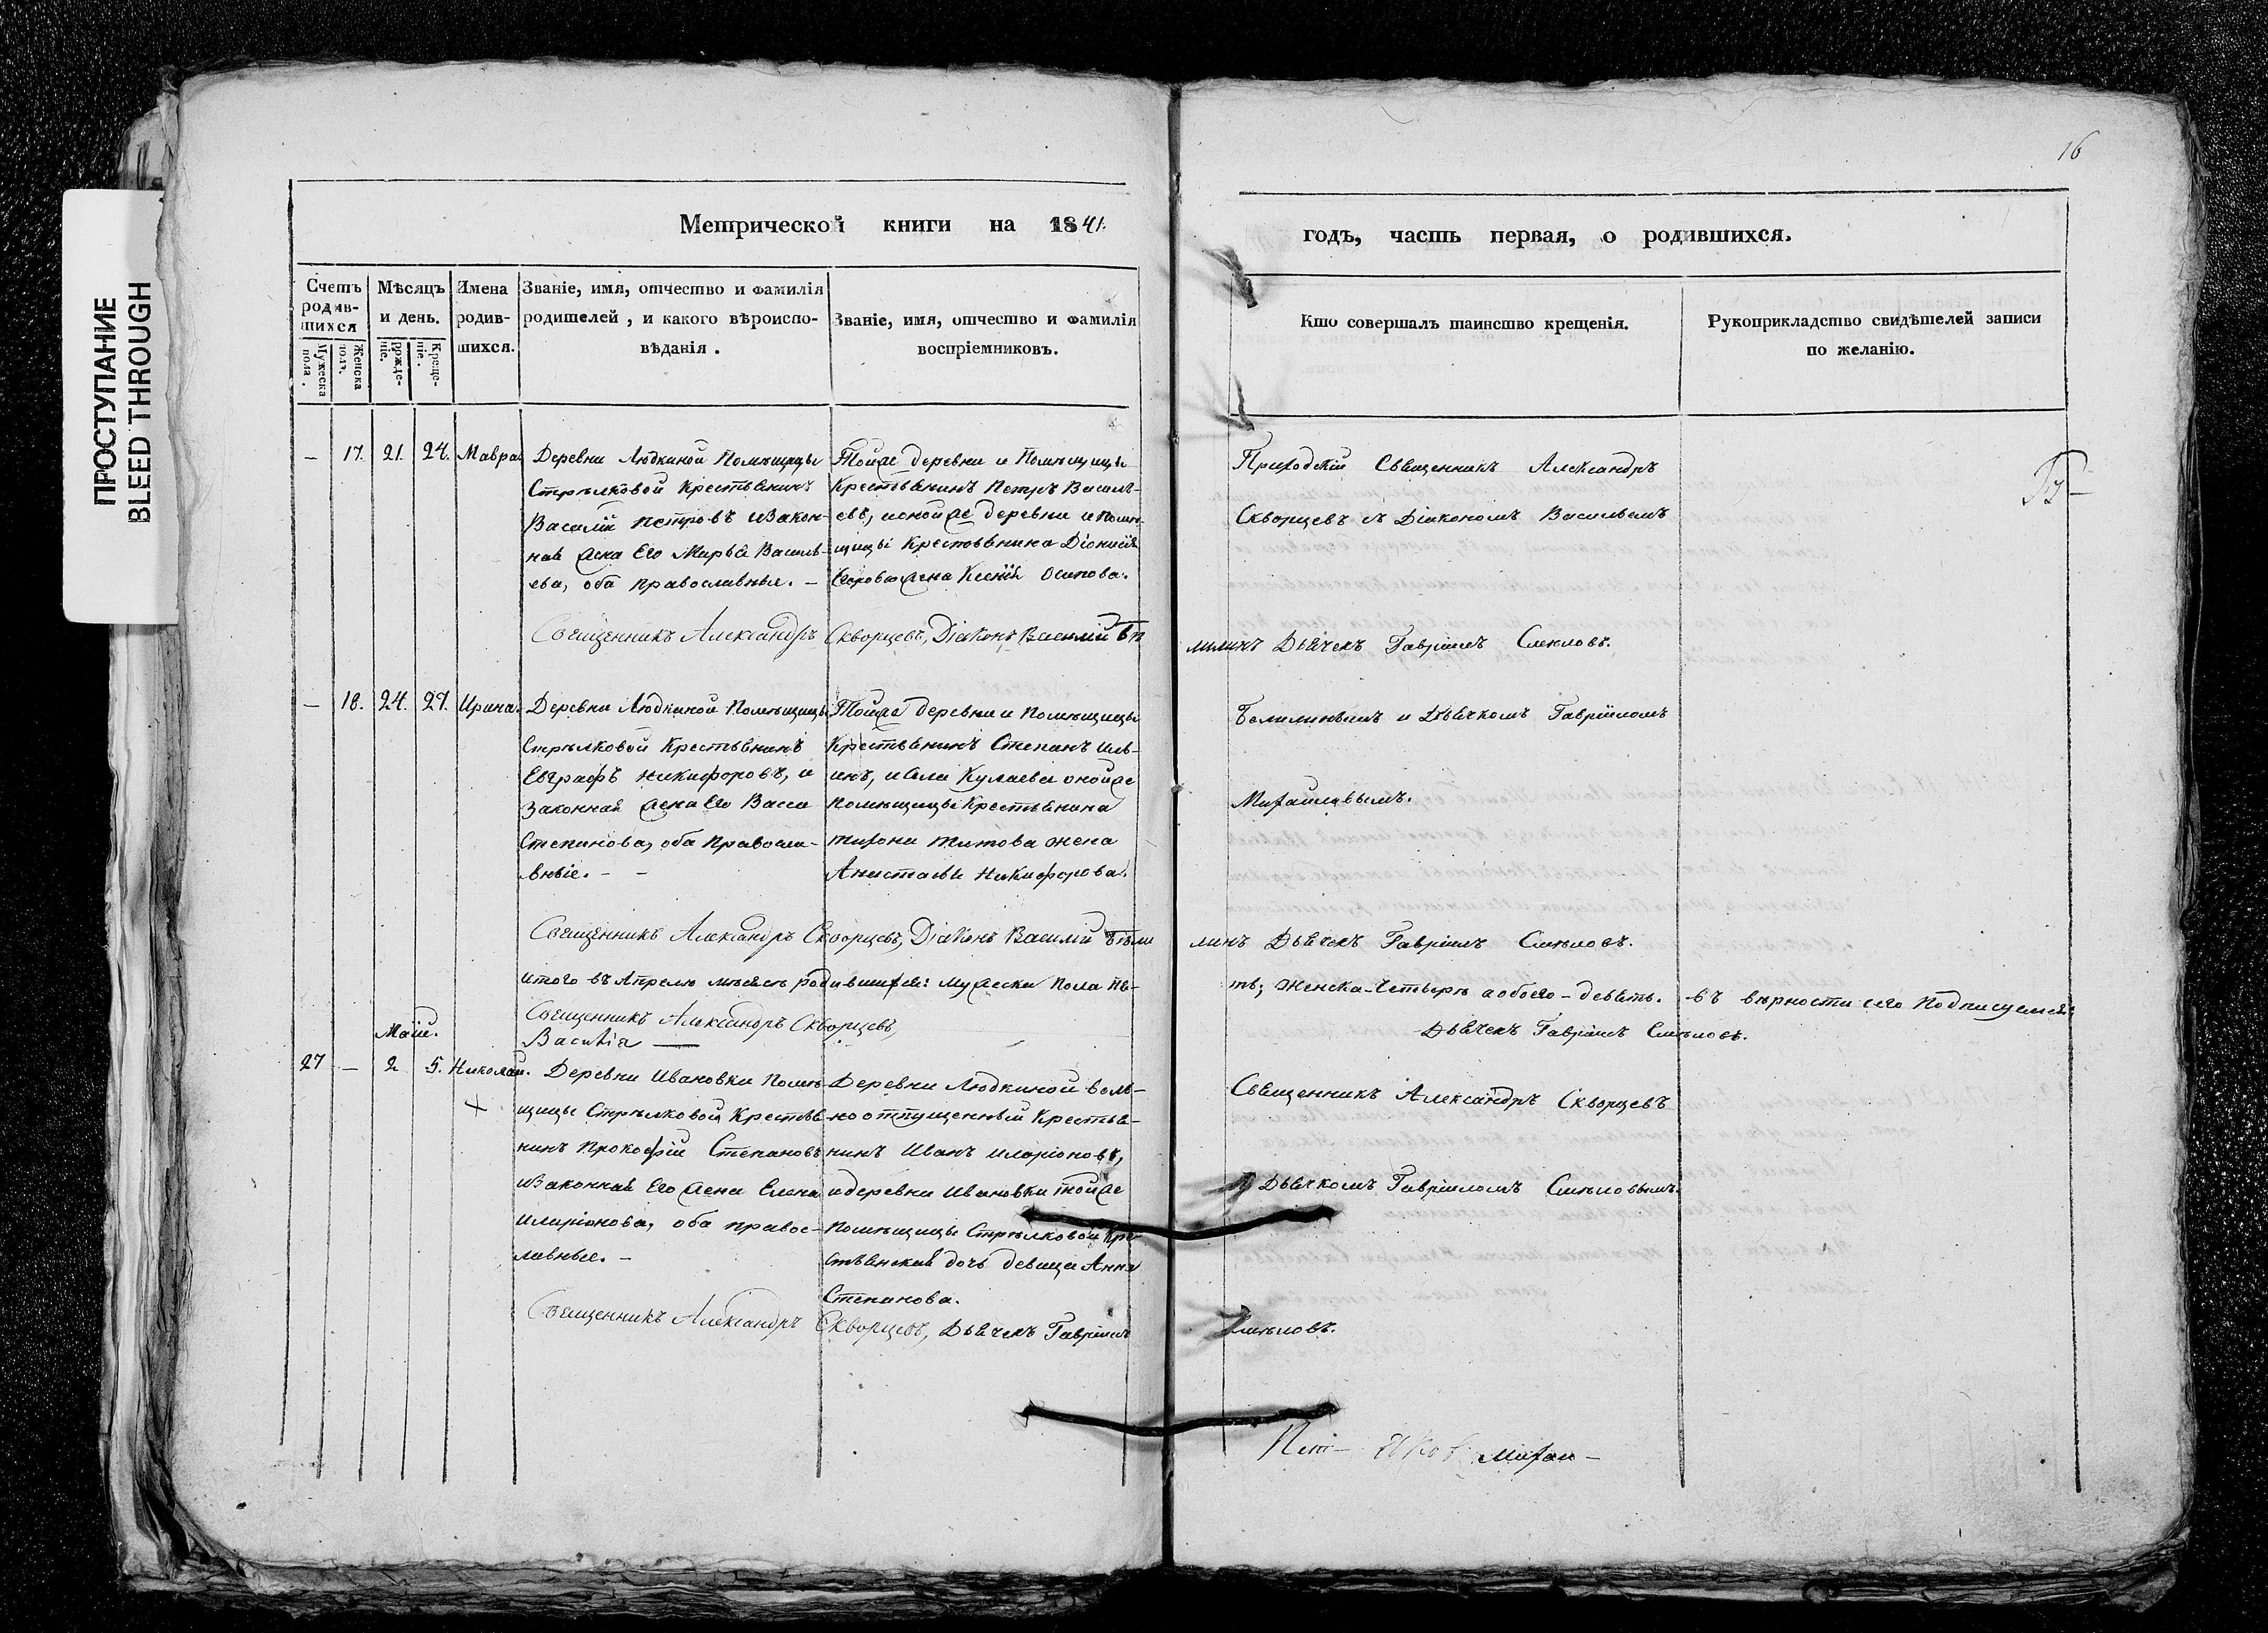 ПРОСТУПАНИЕ
BLEED THROUGH
16
Метрической книги на 1841.
годъ, часть первая, о родившихся.
Счетъ родив-шихся
Мужеска пола.
Женска пола.
Мѣсяцъ и день.
рожде-ніе.
Креще-ніе.
Имена родив-шихся.
Званіе, имя, отчество и фамилія
родителей, и какого вѣроиспо-
вѣданія.
Званіе, имя, отчество и фамилія
воспріемниковъ.
Кто совершалъ таинство крещенія.
Рукоприкладство свидѣтелей записи
по желанію.
— 17. 21. 24. Мавра
Деревни Людкиной Помѣщицы
Стрѣлковой Крестьянинъ
Василій Петровъ и Закон-
ная жена Его Марья Василь-
ева, оба православные. —
Тойже деревни и Помѣщицы
Крестьянинъ Петръ Василь-
евъ, и онойже деревни и Помѣ-
щицы Крестьянина Діонисія
жена Ксенія Осипова.
Приходскій Священникъ Александръ
Скворцевъ съ Діакономъ Васильемъ
Священникъ Александръ Скворцевъ, Діаконъ Василій
Дьячекъ Гавріилъ Смѣловъ.
— 18. 24. 27. Ирина.
Деревни Людкиной Помѣщицы
Стрѣлковой Крестьянинъ
Евграфъ Никифоровъ, и
Законная жена Его Васса
Степанова, оба Правосла-
вные. — —
Тойже деревни и Помѣщицы
Крестьянинъ Степанъ Иль-
инъ, и села Кулаева онойже
Помѣщицы Крестьянина
Тихона Титова жена
Анастасья Никифорова.
Белилинымъ и Дьячкомъ Гавріиломъ
Михайловымъ.
Священникъ Александръ Скворцевъ, Діаконъ Василій Бѣли
линъ Дьячекъ Гавріилъ Смѣловъ.
Итого въ Апрелѣ мѣсяцѣ родившихся: мужеска пола пя-
ть; Женска-Четыре а обоего-девять. — въ вѣрности сего Подписуемся:
Священникъ Александръ Скворцевъ,
Дьячекъ Гавріилъ Смѣловъ.
Маія.
27 — 2 5. Николай.
Деревни Ивановки Помѣ-
щицы Стрѣлковой Крестья
нинъ Прокофій Степановъ
и Законная Его жена Елена
Иларіонова, оба правос-
лавные. —
Деревни Людкиной воль-
но отпущенный Крестья-
нинъ Иванъ Иларіоновъ,
и деревни Ивановки тойже
Помѣщицы Стрѣлковой Кре
стьянская дочь девица Анна
Степанова.
Священникъ Александръ Скворцевъ
съ Дьячкомъ Гавріиломъ Смѣловымъ.
Священникъ Александръ Скворцевъ, Дьячекъ Гавріилъ
Смѣловъ.
Михаи —